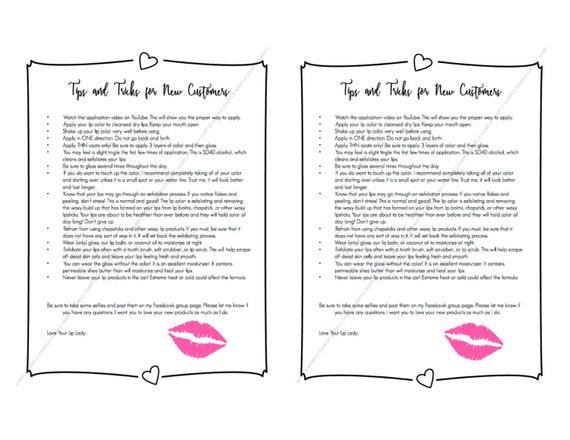 Tips and Tricks for New Customers
• Watch the application video on YouTube This will show you the proper way to apply.
• Apply your lip color to cleansed dry lips. Keep your mouth open.
• Shake up your lip color very well before using.
• Apply in ONE direction. Do not go back and forth.
• Apply THIN coats only! Be sure to apply 3 layers of color and then gloss.
• You may feel a slight tingle the first few times of application. This is SD40 alcohol, which
cleans and exfoliates your lips.
• Be sure to gloss several times throughout the day
• If you want to touch up the color, I recommend completely taking all of your color
and starting over unless it is a small spot or your water line. Trust me, it will look better
and last longer.
• Know that your lips may go through an exfoliation process. If you notice flakes and
peeling, don't stress! This is normal and good! The lip color is exfoliating and removing
the waxy build up from everyday impurities and previously used waxy chapstick or
lipsticks. Your lips are about to be healthier than ever before and they will hold color all
day long! Don't give up.
• Refrain from using chapsticks and other waxy lip products. If you must, be sure that it
does not have any sort of wax in it. It will set back the exfoliating process.
• Wear (only) gloss, our lip balm, or coconut oil to moisturize at night
• Exfoliate your lips often with a tooth brush, soft scrubber, or sugar lip scrub. This will help scrape
off dead skin cells and leave your lips feeling fresh and smooth.
• You can wear the gloss without the color! It is an excellent moisturizer. It contains
permeable shea butter than will moisturize and heal your lips.
• Never leave your lip products in the car! Extreme heat or cold could affect the formula.
Be sure to take some selfies and post them on my Facebook group page. Please let me know if
you have any questions. I want you to love your new products as much as I do.
Love Your Lip Lady,
Tips and Tricks for New Customers
• Watch the application video on YouTube This will show you the proper way to apply.
• Apply your lip color to cleansed dry lips. Keep your mouth open.
• Shake up your lip color very well before using.
• Apply in ONE direction. Do not go back and forth.
• Apply THIN coats only! Be sure to apply 3 layers of color and then gloss.
• You may feel a slight tingle the first few times of application. This is SD40 alcohol, which
cleans and exfoliates your lips.
• Be sure to gloss several times throughout the day
• If you want to touch up the color, I recommend completely taking all of your color
and starting over unless it is a small spot or your water line. Trust me, it will look better
and last longer.
• Know that your lips may go through an exfoliation process. If you notice flakes and
peeling, don't stress! This is normal and good! The lip color is exfoliating and removing
the waxy build up from everyday impurities and previously used waxy chapstick or
lipsticks. Your lips are about to be healthier than ever before and they will hold color all
day long! Don't give up.
• Refrain from using chapsticks and other waxy lip products. If you must, be sure that it
does not have any sort of wax in it. It will set back the exfoliating process.
• Wear (only) gloss, our lip balm, or coconut oil to moisturize at night
• Exfoliate your lips often with a tooth brush, soft scrubber, or sugar lip scrub. This will help scrape
off dead skin cells and leave your lips feeling fresh and smooth.
• You can wear the gloss without the color! It is an excellent moisturizer. It contains
permeable shea butter than will moisturize and heal your lips.
• Never leave your lip products in the car! Extreme heat or cold could affect the formula.
Be sure to take some selfies and post them on my Facebook group page. Please let me know if
you have any questions. I want you to love your new products as much as I do.
Love Your Lip Lady,